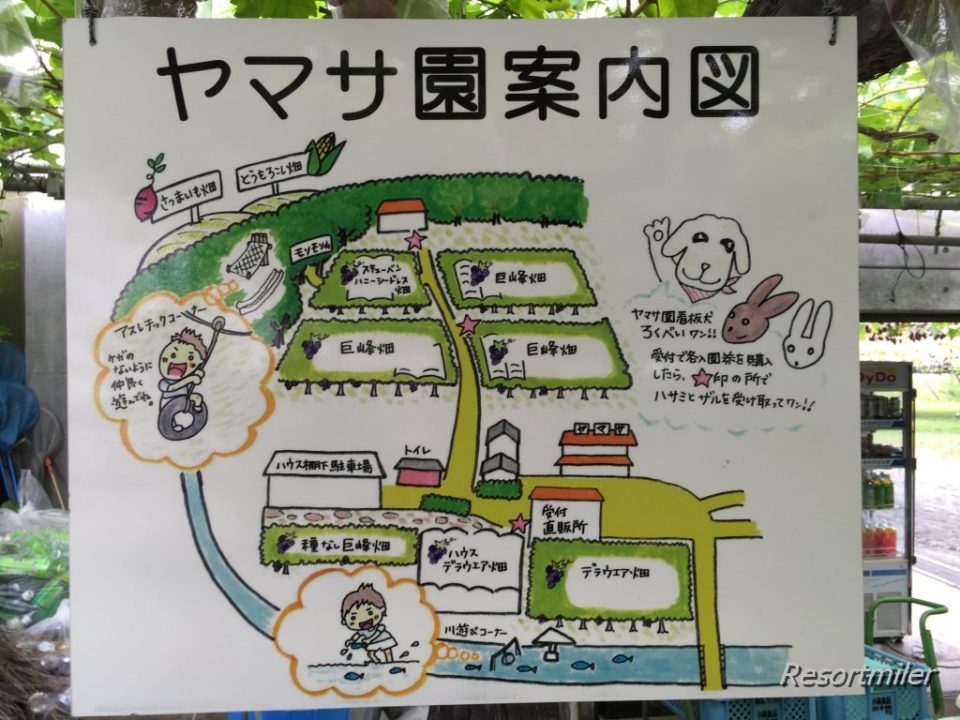 ヤマサ園案内図
さつまいも畑
とうもろこし畑
モリモリ山
スチューベン
ハニーシードレス
畑
巨峰畑
巨峰畑
巨峰畑
アスレチックコーナー
ケガの
ないように
仲良く
遊んでね。
ヤマサ園看板犬
ろくべいワン!!
受付で各入園券を購入
したら、★印の所で
ハサミとザルを受け取ってワン!!
DyDo
ヤマサ
トイレ
ハウス棚下駐車場
受付
直販所
種なし巨峰畑
ハウス
デラウエア畑
デラウエア畑
川遊びコーナー
Resortmiler